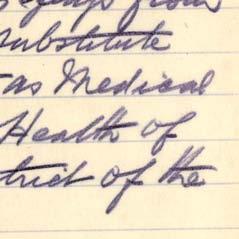 from
substitute
as Medical
Health of
trict of the